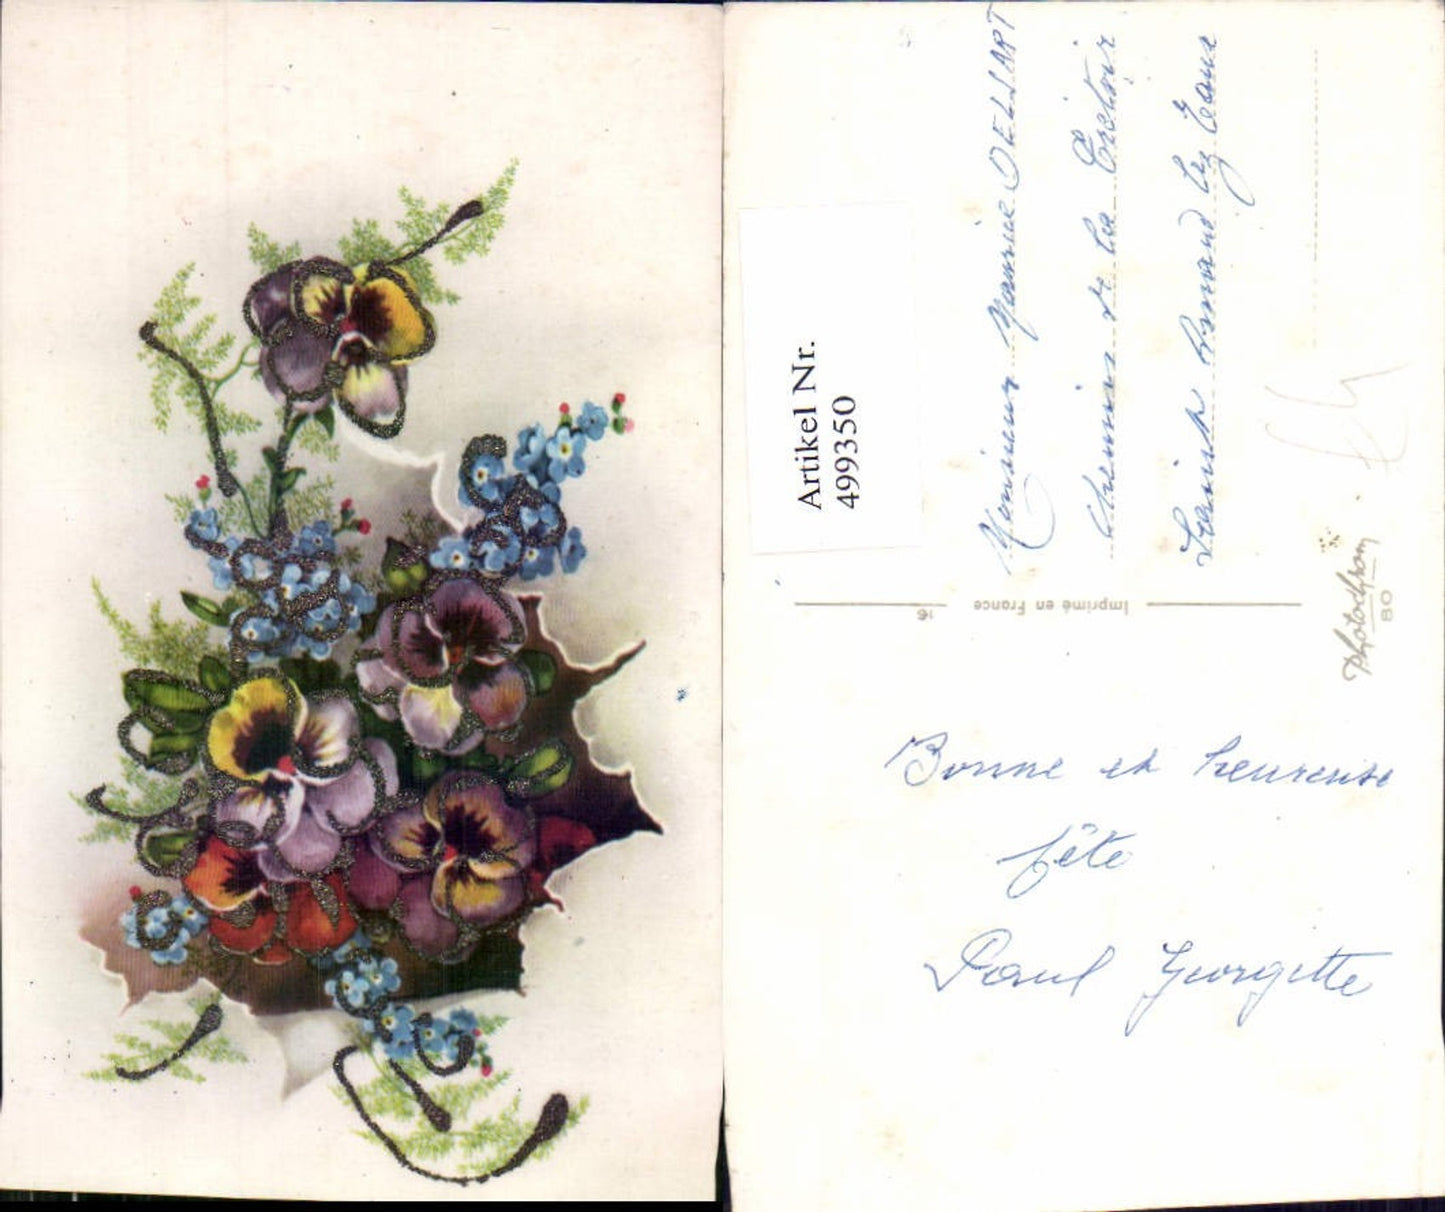 Artikel Nr.
499350
Monsieur Maurice DELSART
Chemin de la
Sainte Amand les Eaux
Imprimé en France
16
Photochrom
80
Bonne et heureuse
fête
Paul Georgette